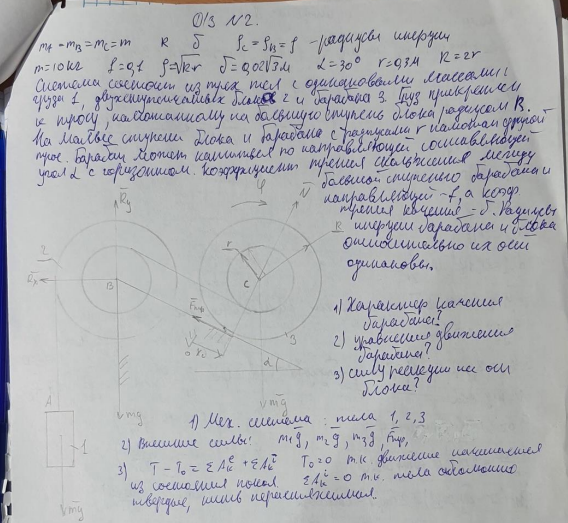 ОТЗ N2.
m_A = m_B = m_C = m R б ρ_C = ρ_B = ρ - радиусы инерции
m = 10 кг f = 0,1 ρ = √Rr δ = 0,02√3 м α = 30° r = 0,3 м R = 2r
Система состоит из трех тел с одинаковыми массами:
груза 1, двухступенчатых блока 2 и барабана 3. Груз прикреплен
к тросу, намотанному на большую ступень блока радиусом R.
На малые ступени блока и барабана с радиусами r намотан другой
трос. Барабан может катиться по направляющей составляющей
угол α с горизонтом. Коэффициент трения скольжения между
большой ступенью барабана и
направляющей - f, а коэф.
трения качения - δ. Радиусы
инерции барабана и блока
относительно их оси
одинаковы.
φ
N
R_y
2
r
R
R_x
B
C
F_тр
3
1) Характер качения
барабана?
2) уравнения движения
барабана?
3) силу реакции на оси
блока?
0 x_c
α
A
1
mg
mg
mg
1) Мех. система: тела 1, 2, 3
2) Внешние силы: m_1g, m_2g, m_3g, F_тр,
3) T - T_0 = ΣA_k^e + ΣA_k^i T_0 = 0 т.к. движение начинается
из состояния покоя ΣA_k^i = 0 т.к. тела абсолютно
твердые, нить нерастяжимая.